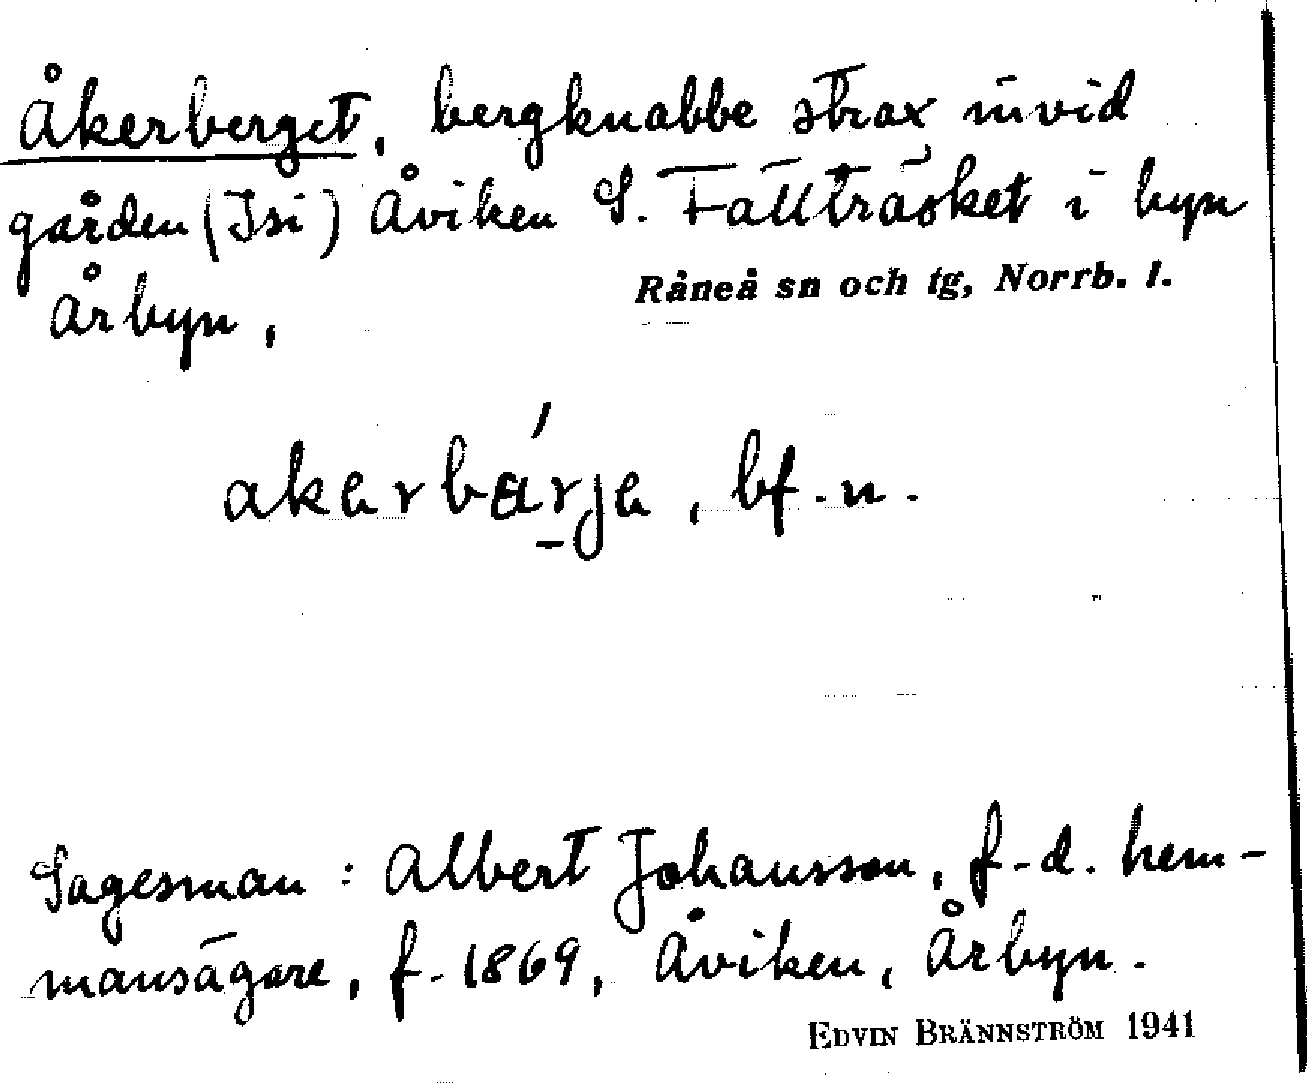 Åkerberget, bergknabbe strax invid
gården (Isi) Åviken S. Fällträsket i byn
Årbyn,
Råneå sn och tg, Norrb. l.
akerbárje, bf. n.
Sagesman: Albert Johansson, f-d. hem-
mansägare, f. 1869, Åviken, Årbyn.
EDVIN BRÄNNSTRÖM 1941